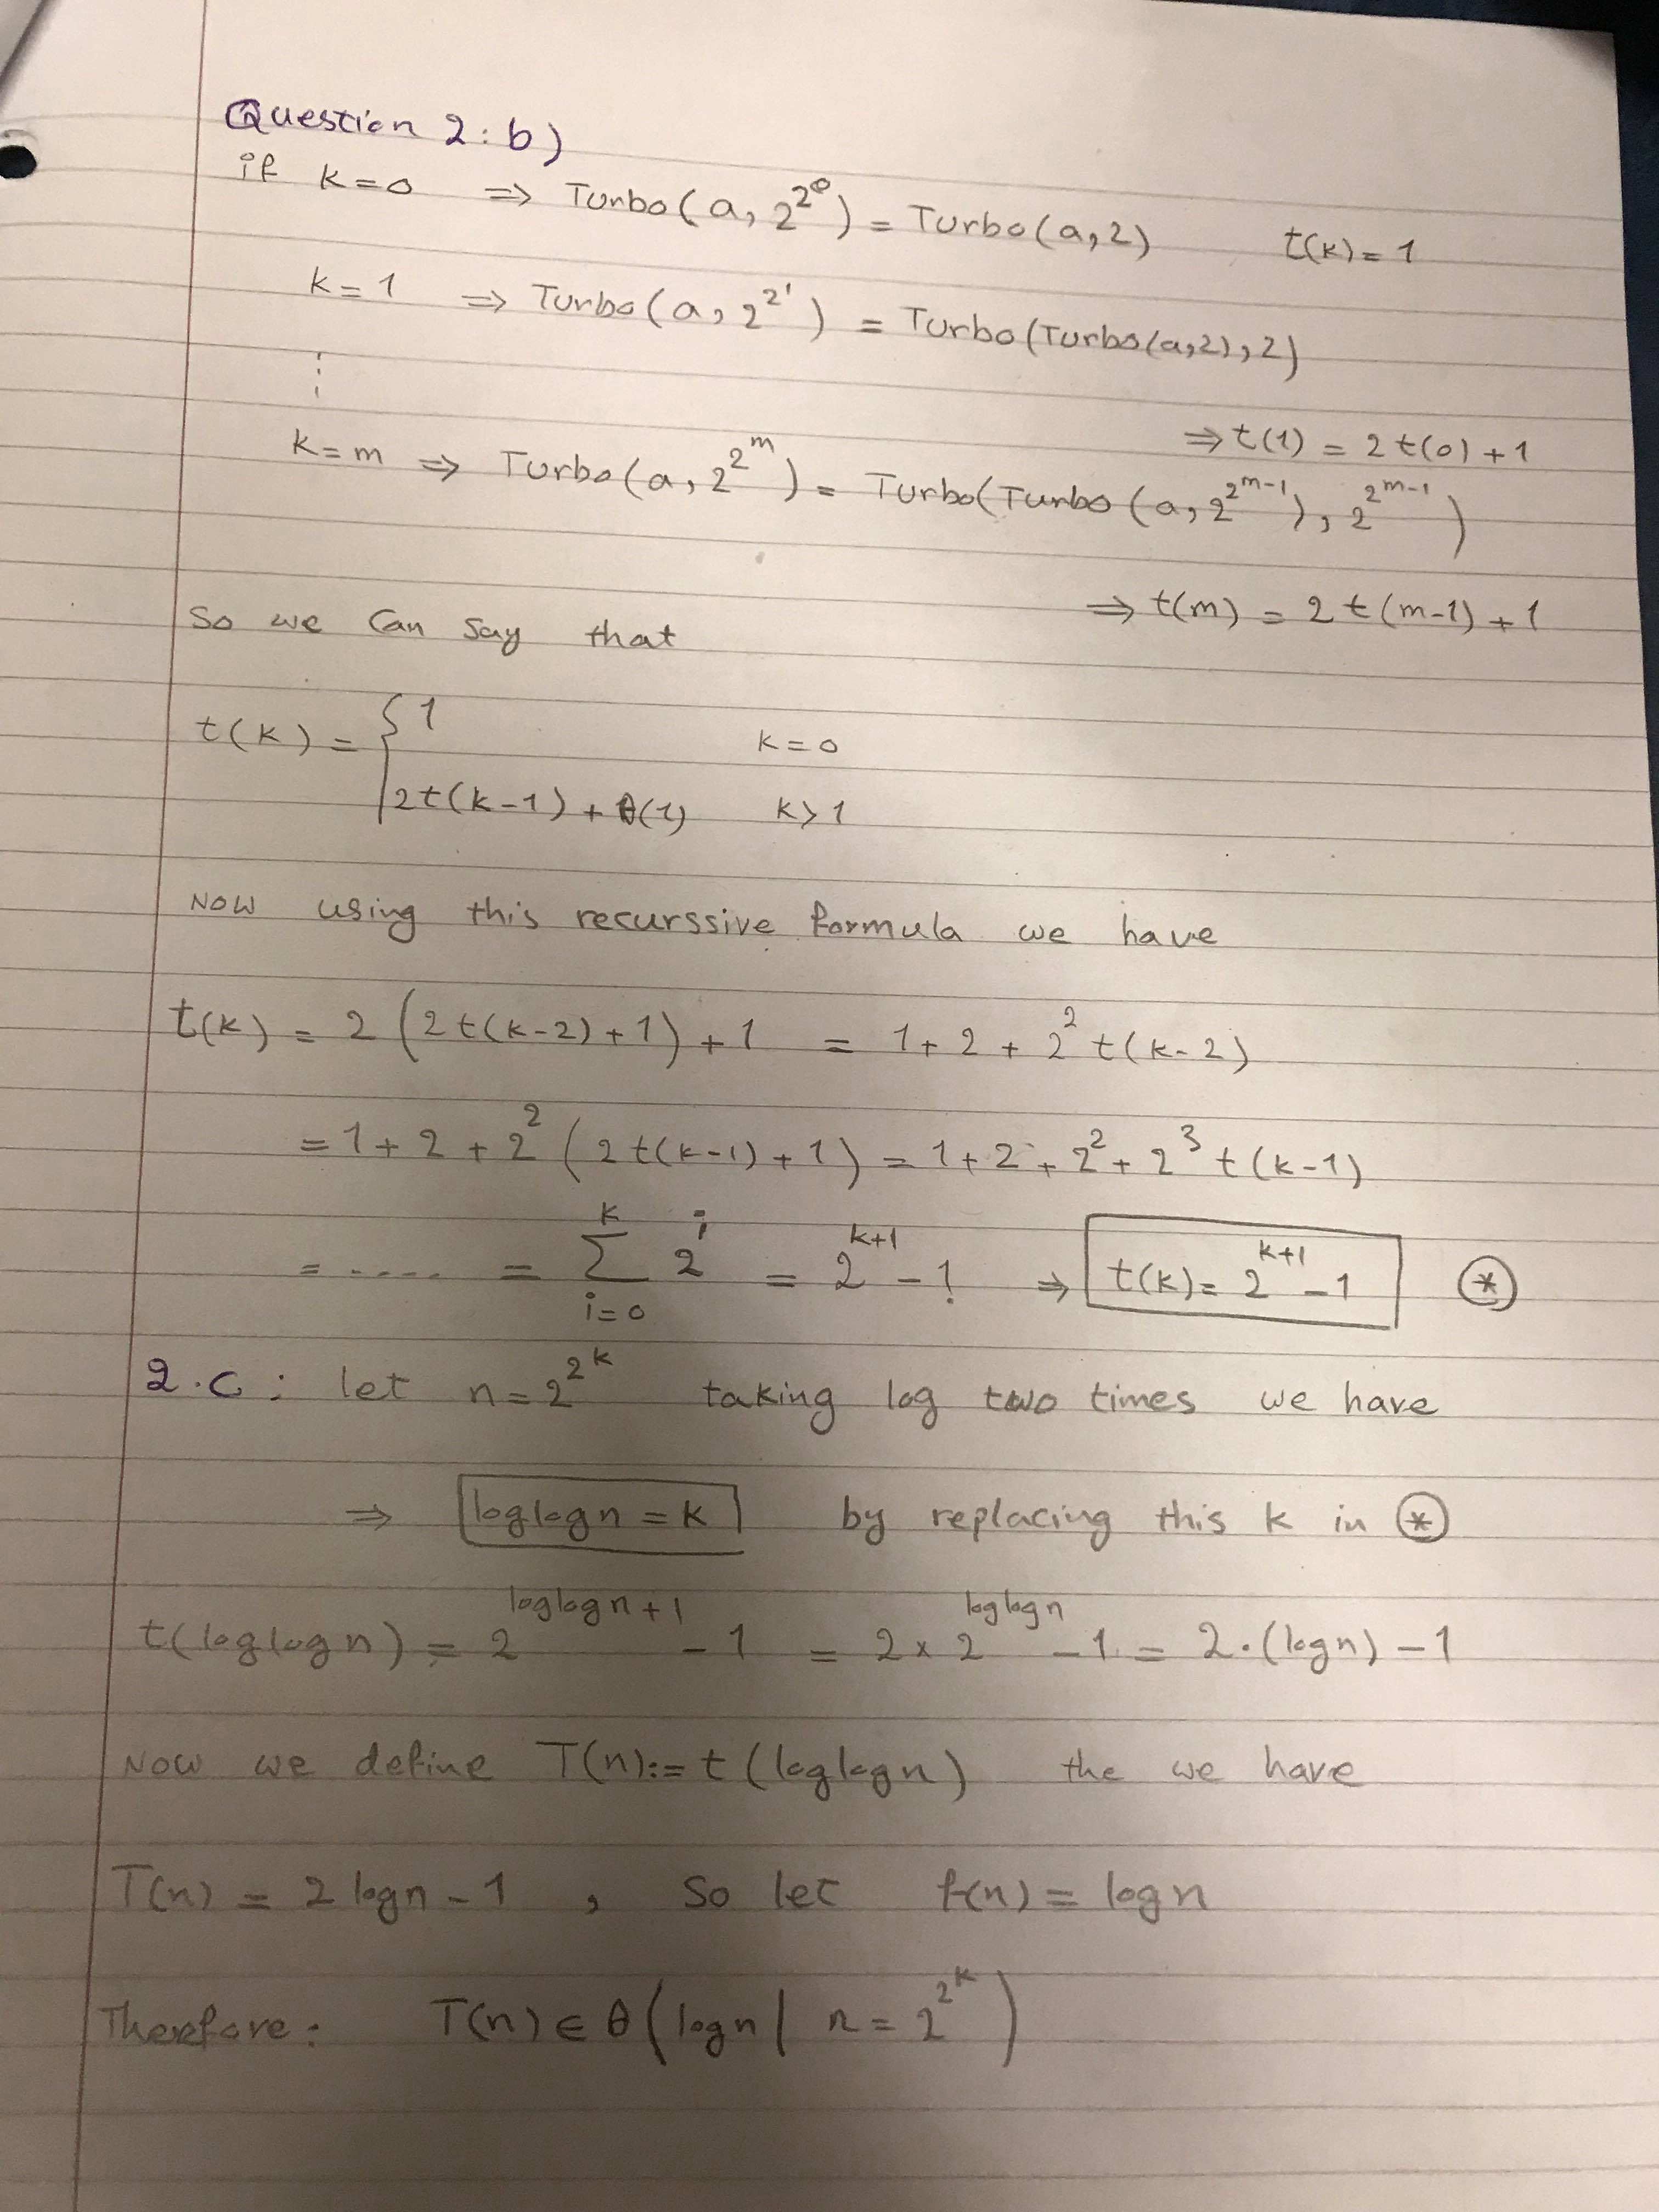 Question 2: b)
if k=0 ⇒ Turbo(a, 2^{2^0}) = Turbo(a,2) t(k)=1
k=1 ⇒ Turbo(a, 2^{2^1}) = Turbo(Turbo(a,2),2)
⋮
⇒ t(1) = 2t(0)+1
k=m ⇒ Turbo(a, 2^{2^m}) = Turbo(Turbo(a, 2^{2^{m-1}}), 2^{2^{m-1}})
⇒ t(m) = 2t(m-1)+1
So we can say that
t(k) = { 1 k=0
2t(k-1) + θ(1) k>1
Now using this recurssive formula we have
t(k) = 2(2t(k-2)+1)+1 = 1+2+2^2 t(k-2)
= 1+2+2^2(2t(k-1)+1) = 1+2+2^2+2^3 t(k-1)
= ..... = ∑_{i=0}^{k} 2^i = 2^{k+1} -1 ⇒ t(k)= 2^{k+1} -1 ⊛
2.C: let n=2^{2^k} taking log two times we have
⇒ loglogn = k by replacing this k in ⊛
t(loglogn) = 2^{loglogn+1} -1 = 2×2^{loglogn} -1 = 2·(logn) -1
Now we define T(n):= t(loglogn) the we have
T(n) = 2logn -1 , So let f(n) = logn
Therefore: T(n) ∈ θ(logn | n=2^{2^k})